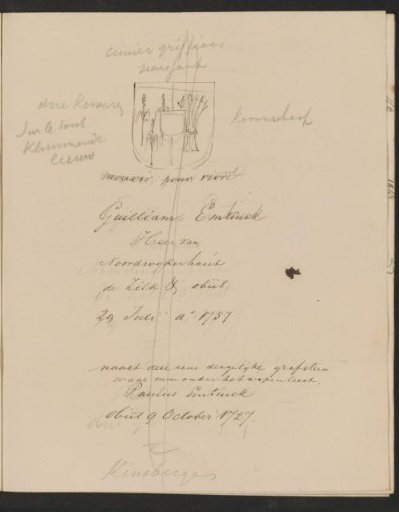 cimier griffioen
naissant
drie koren
Sur le tout
Klimmende
Leeuw
korenschoof
mourir pour vivre
Guilliam Emtinck
Heer van
Noordwykerhout
de Zilk & obiit
29 Juli aº 1757
naast deze een dergelyke grafsteen
waar men onder het wapen leest.
Paulus Emtinck
Obiit 9 October 1727.
Kinsbergen